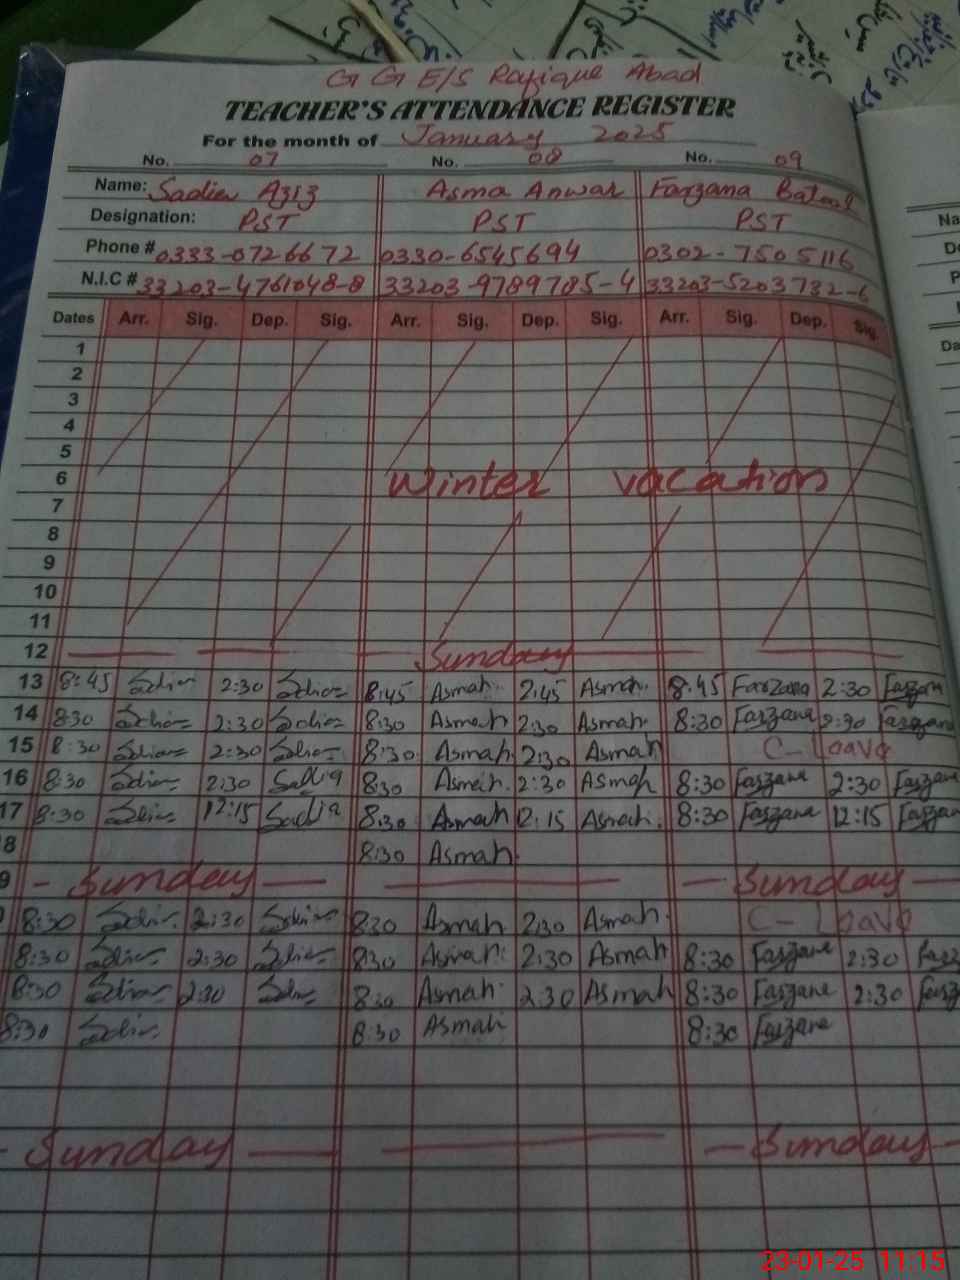 G G E/S Rafique Abad
TEACHER'S ATTENDANCE REGISTER
For the month of January 2025
No. 07 No. 08 No. 09
Name: Sadia Aziz Asma Anwar Farzana Batool
Designation: PST PST PST
Phone # 0333-0726672 0330-6545694 0302-7505116
N.I.C # 33203-4761048-8 33203-9789785-4 33203-5203732-6
Dates Arr. Sig. Dep. Sig. Arr. Sig. Dep. Sig. Arr. Sig. Dep. Sig.
1
2
3
4
5
6 Winter vacation
7
8
9
10
11
12 Sunday
13 8:45 Sadia 2:30 Sadia 8:45 Asmah 2:45 Asmah 8:45 Farzana 2:30 Farzana
14 8:30 Sadia 2:30 Sadia 8:30 Asmah 2:30 Asmah 8:30 Farzana 2:30 Farzana
15 8:30 Sadia 2:30 Sadia 8:30 Asmah 2:30 Asmah C-Leave
16 8:30 Sadia 2:30 Sadia 8:30 Asmah 2:30 Asmah 8:30 Farzana 2:30 Farzana
17 8:30 Sadia 12:15 Sadia 8:30 Asmah 12:15 Asmah 8:30 Farzana 12:15 Farzan
8 8:30 Asmah
9 Sunday Sunday
8:30 Sadia 2:30 Sadia 8:30 Asmah 2:30 Asmah C-Leave
8:30 Sadia 2:30 Sadia 8:30 Asmah 2:30 Asmah 8:30 Farzana 2:30 Farz
8:30 Sadia 2:30 Sadia 8:30 Asmah 2:30 Asmah 8:30 Farzana 2:30 Farz
8:30 Sadia 8:30 Asmah 8:30 Farzana
Sunday Sunday
Na
De
P
Da
23-01-25 11:15